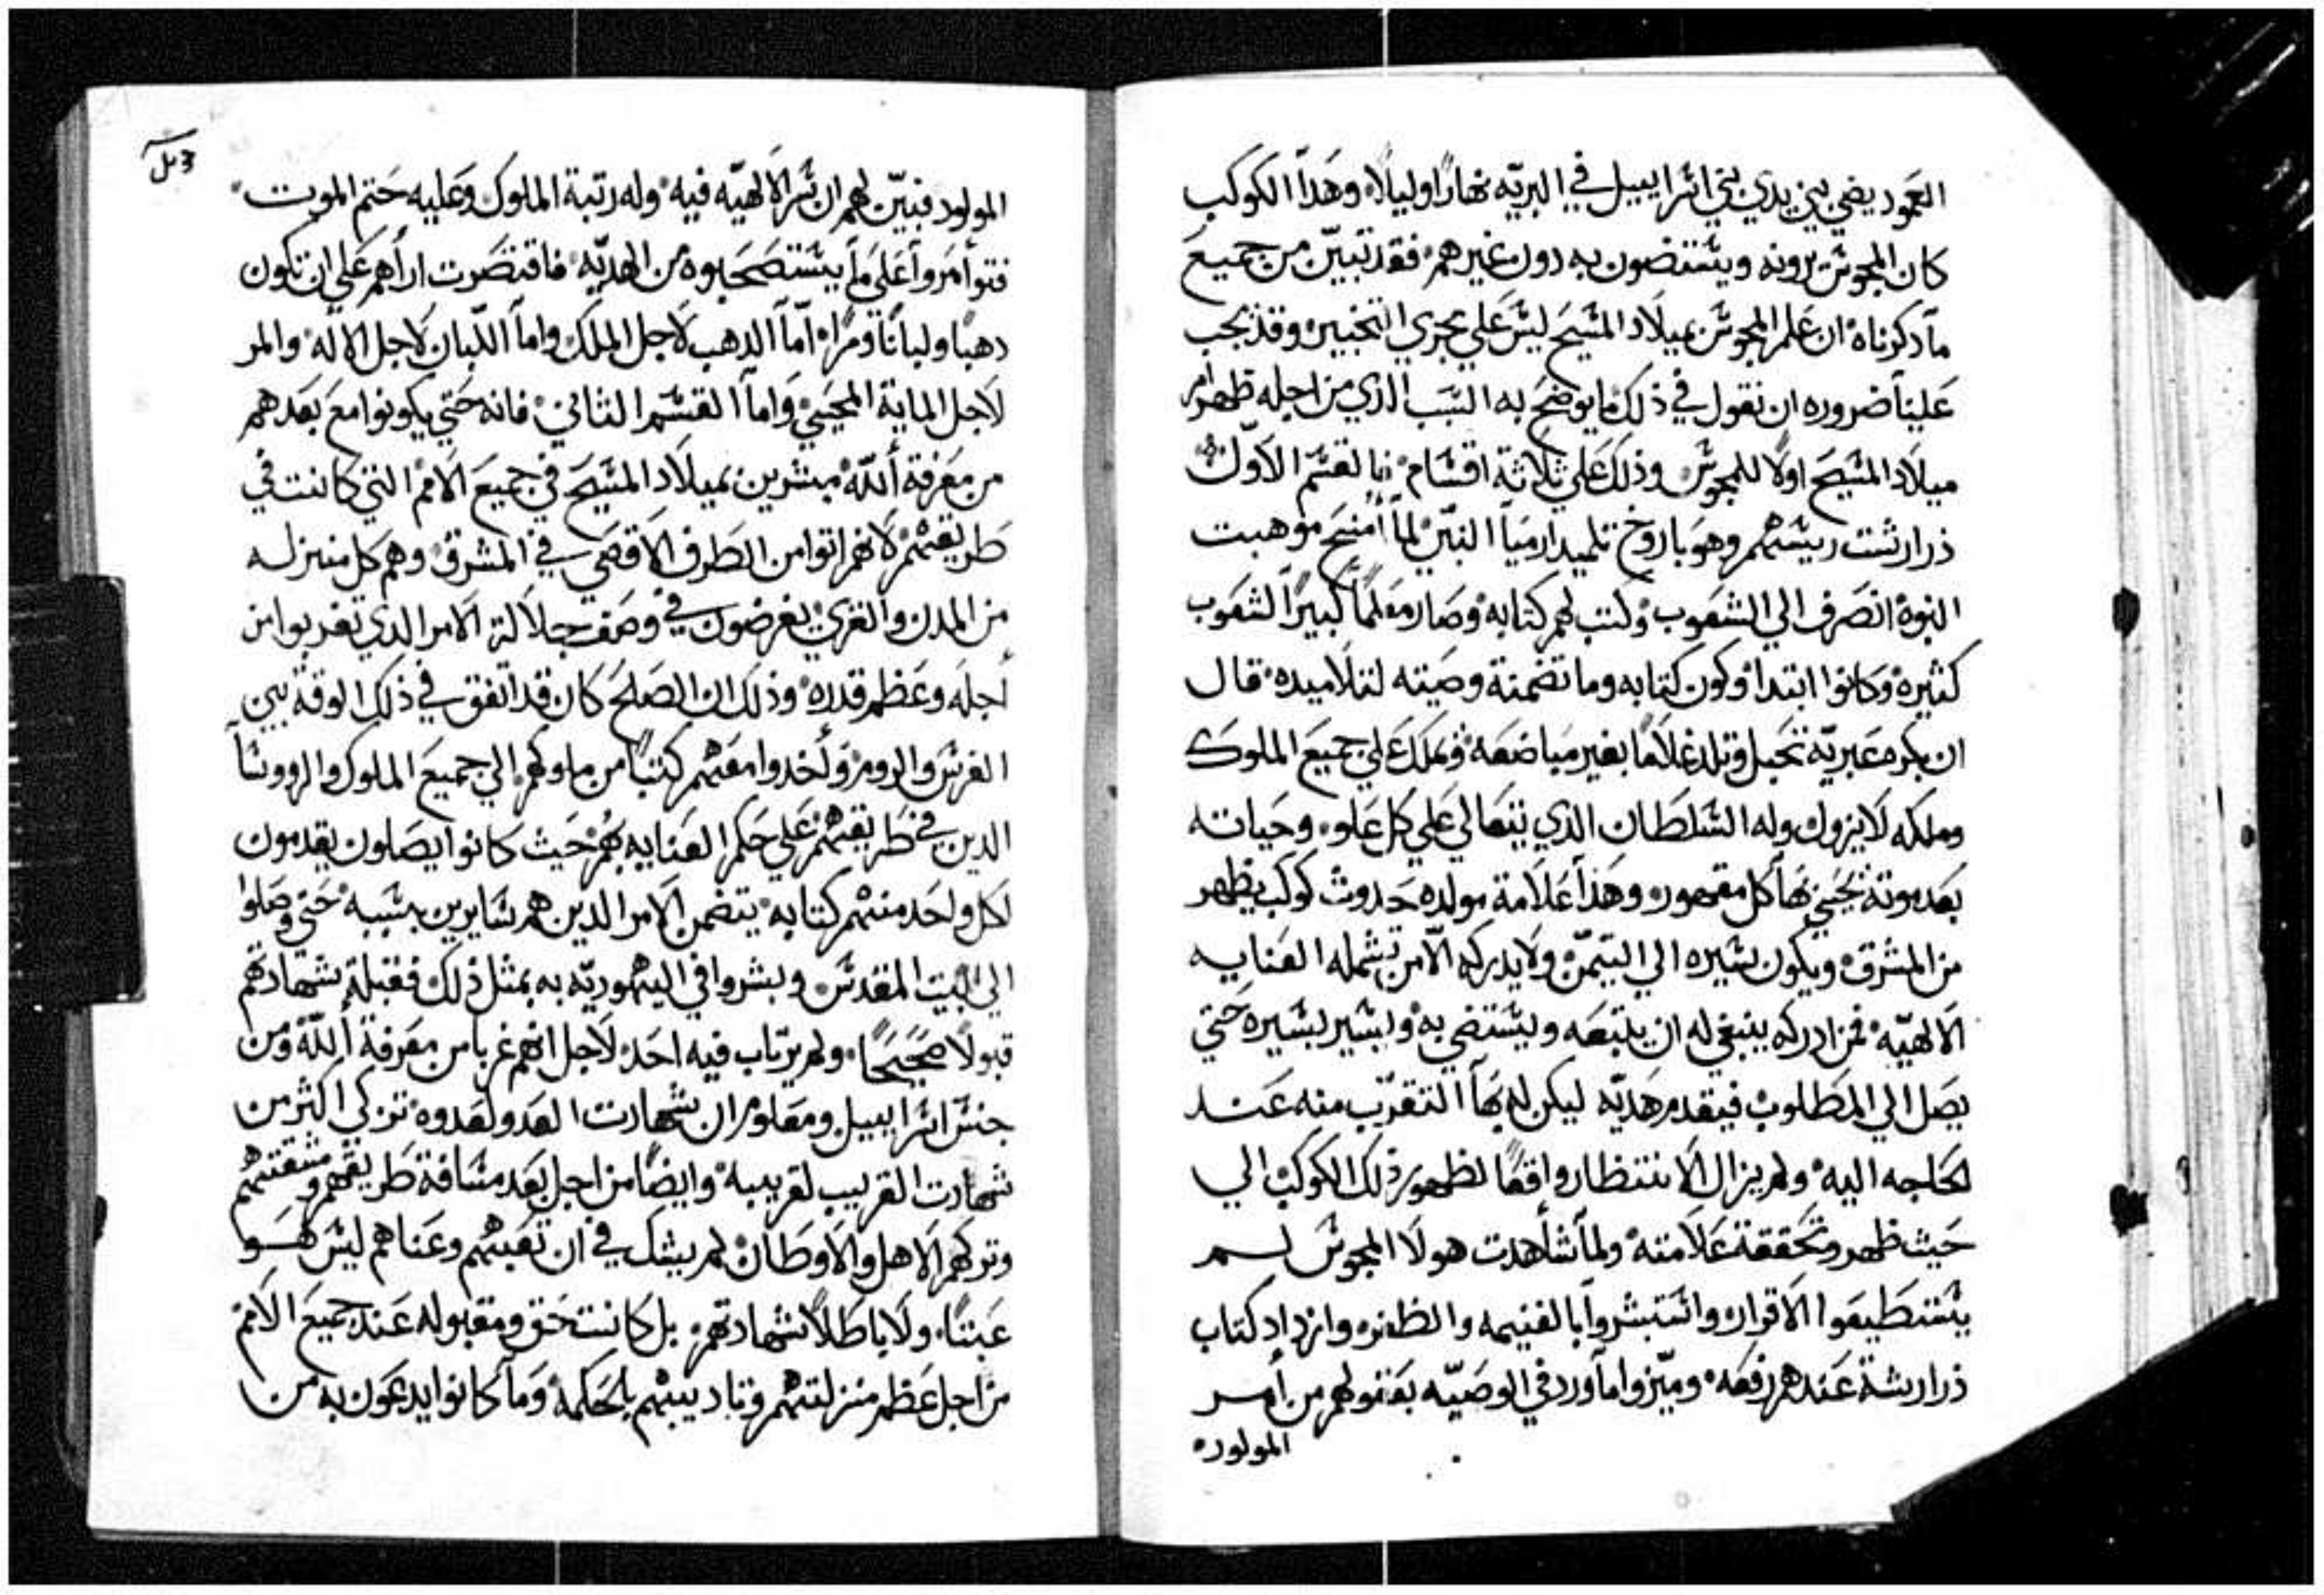 العمود يضي بين يدي بني اسراييل في البريّه نهارًا وليلًا وهذا الكوكب
كان المجوس يرونه ويستضون به دون غيرهم فقد تبيّن من جميع
ما دكرناه ان علم المجوس بميلاد المسيح ليس علي مجري التخبير وقد يجب
علينا ضروره ان نقول في ذلك ما يوضح به السبب الذي من اجله ظهر امر
ميلاد المسيح اولًا للمجوس وذلك علي ثلاثة اقسام فالقسم الاوّل
ذرارشت رييسهم وهو باروخ تلميد ارميا النبيّ لما أمنح موهبت
النبوة انصرف الي الشعوب وكتب لهم كتابه وصار معلمًا كبيرًا لشعوب
كثيره وكانوا ابتداو كون كتابه وما تضمنة وصيته لتلاميده قال
ان بكره عبريّة تحبل وتلد غلامًا بغير مباضعه فيملك علي جميع الملوك
وملكه لا يزول وله السلطان الذي يتعالي علي كل علو وحياته
بعد موته يحيي بها كل مقهور وهذا علامة مولده حدوث كوكب يظهر
من المشرق ويكون سيره الي التيمن ولا يدركه الّا من تشمله العنايه
الالهيّه فمن ادركه ينبغي له ان يتبعه ويستضي به ويسير بسيره حتي
يصل الي المطلوب فيقدم هديّه ليكن له بها التقرّب منه عند
الحاجه اليه ولم يزال الانتظار واقعًا لظهور ذلك الكوكب الي
حيث ظهر وتحققة علامته ولما شاهدت هولا المجوس لم
يستطيعوا الاقرار واستبشروا بالغنيمه والظفر وازداد كتاب
ذرارشة عندهم رفعه وميّزوا ما اورد في الوصيّه بقوله لهم من أمر
المولود
المولود فبيّن لهم ان سرّ الالهيّه فيه وله رتبة الملوك وعليه ختم الموت
فتوأمروا علي ما يستصحبوه من الهديّه فاقتصرت ارأهم علي ان تكون
دهبًا ولبانًا ومرًا أمّا الدهب لاجل الملك واما اللبان لاجل الاله والمر
لاجل الماية المحيي واما القسم الثاني فانه حتي يكونوا مع بعدهم
من معرفة ألله مبشرين بميلاد المسيح في جميع الامم التي كانت في
طريقهم لانهم اتوا من الطرف الاقصي في المشرق وهم كل منزله
من المدن والقري يغرضون في وصف جلالة الامر الدي تغربوا من
أجله وعظم قدره وذلك ان الصلح كان قد اتفق في ذلك الوقة بين
الفرس والروم وأخدوا معهم كتبًا من ملوكهم الي جميع الملوك والرووسا
الدين في طريقهم علي حكم العنايه بهم حيث كانوا يصلون يقدمون
لكل واحد منهم كتابه يتضمن الامر الدين هم سايرين بسببه حتي وصلوا
الي البيت المقدس وبشروا في اليهوديّه به بمثل ذلك فقبلة شهادتهم
قبولًا صحيحًا ولم يرتاب فيه احد لاجل انهم غربا من معرفة ألله ومن
جنس اسراييل ومعلوم ان شهادت العدو لعدوه تزكي اكثر من
شهادت القريب لقريبه وايضًا من اجل بعد مسافة طريقهم ومشقتهم
وتركهم الاهل والاوطان لم يشك في ان تعبهم وعناهم ليس هو
عبثًا ولا باطلًا شهادتهم بل كانت حق ومقبوله عند جميع الامم
من اجل عظم منزلتهم وتاديبهم بالحكمة وما كانوا يدعون به من